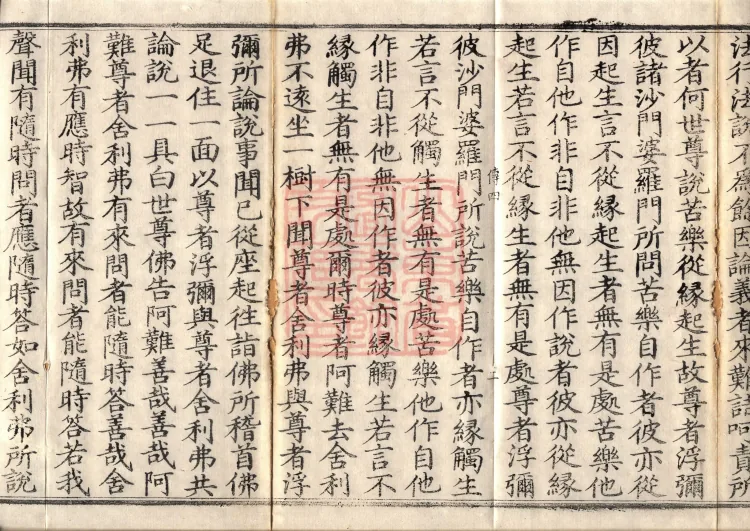 法行法說不為餘因論義者來難詰呵責所
以者何世尊說苦樂從緣起生故尊者浮彌
彼諸沙門婆羅門所問苦樂自作者彼亦從
因起生言不從緣起生者無有是處苦樂他
作自他作非自非他無因作說者彼亦從緣
起生若言不從緣生者無有是處尊者浮彌
彼沙門婆羅門所說苦樂自作者亦緣觸生
若言不從觸生者無有是處苦樂他作自他
作非自非他無因作者彼亦緣觸生若言不
緣觸生者無有是處爾時尊者阿難去舍利
弗不遠坐一樹下聞尊者舍利弗與尊者浮
彌所論說事聞已從座起往詣佛所稽首佛
足退住一面以尊者浮彌與尊者舍利弗共
論說一一具白世尊佛告阿難善哉善哉阿
難尊者舍利弗有來問者能隨時答善哉舍
利弗有應時智故有來問者能隨時答若我
聲聞有隨時問者應隨時答如舍利弗所說